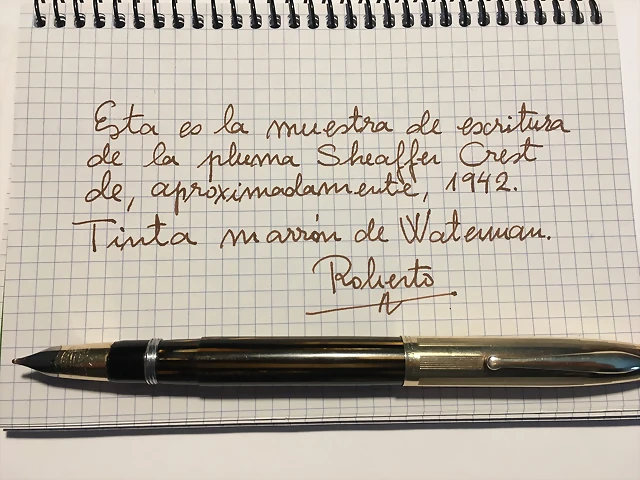 Esta es la muestra de escritura
de la pluma Sheaffer Crest
de, aproximadamente, 1942.
Tinta marrón de Waterman.
Roberto